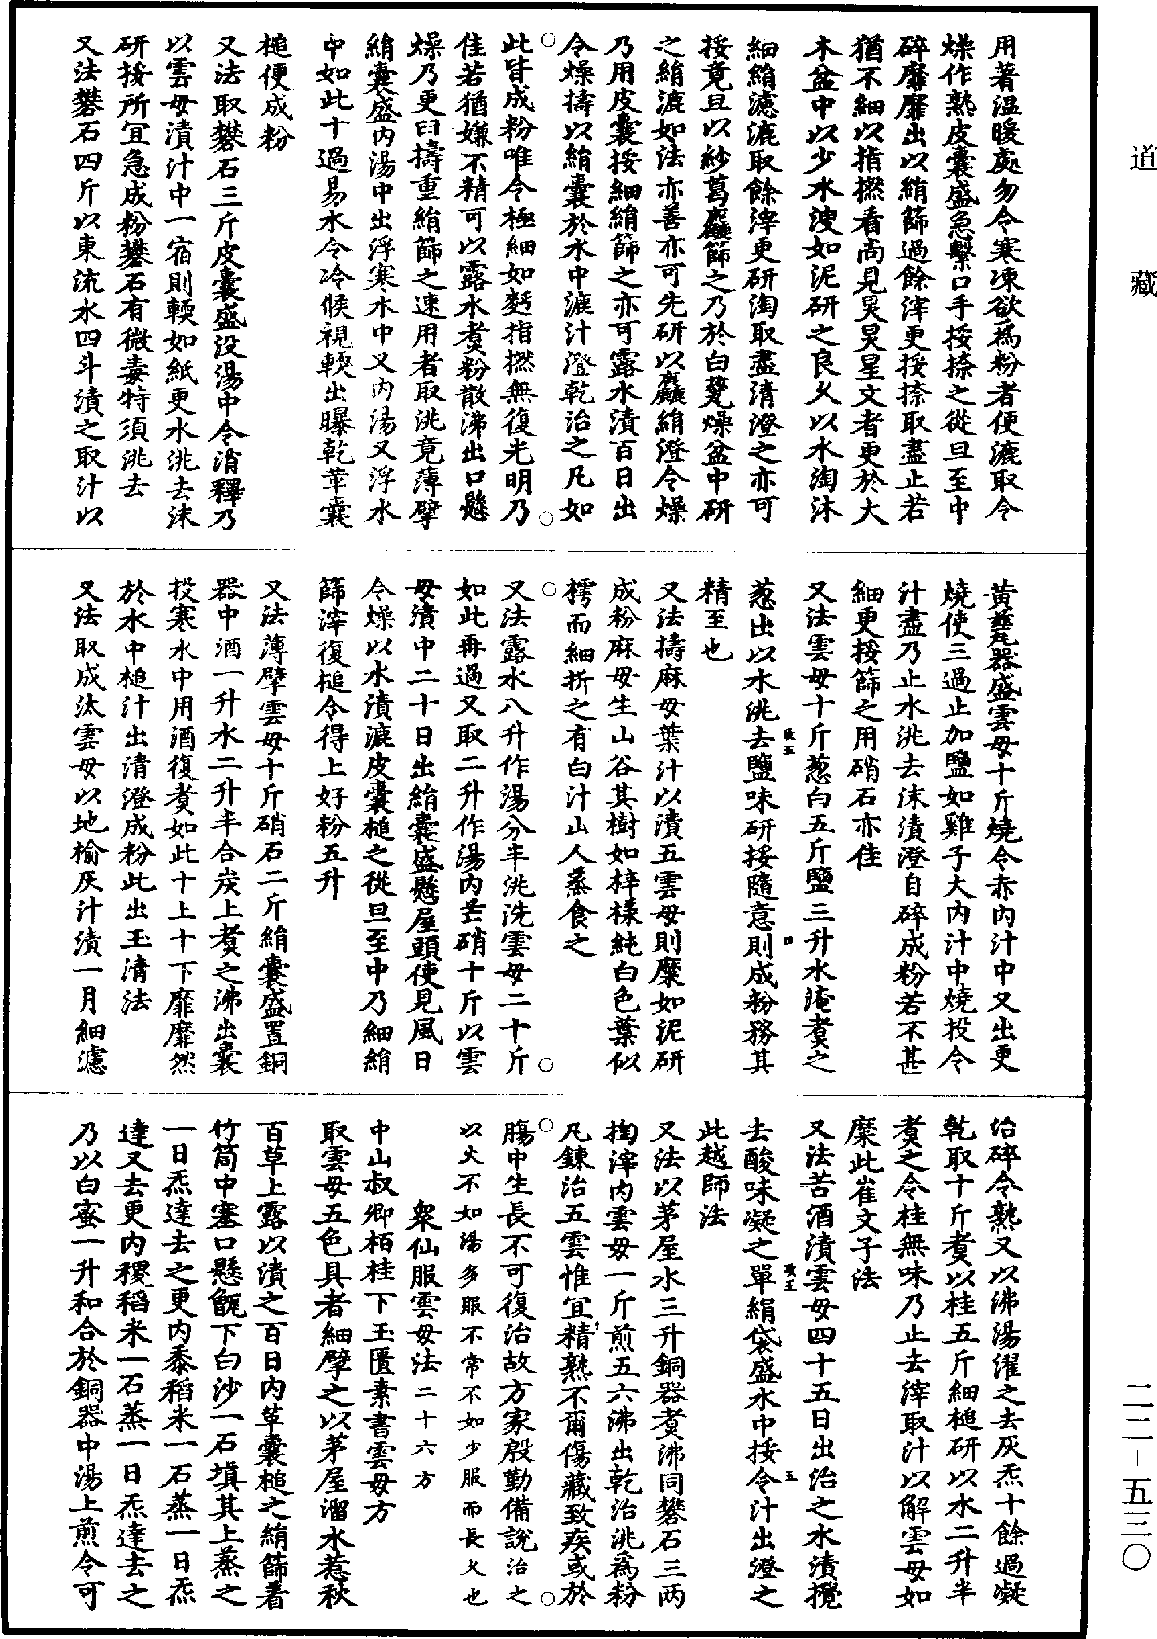 道藏
用著温暖處勿令寒凍欲爲粉者便漉取令
燥作熟皮囊盛急繫口手挼捺之從旦至中
碎靡靡出以絹篩過餘滓更挼捺取盡止若
猶不細以指撚看尚見炅炅星文者更於大
木盆中以少水溲如泥研之良久以水淘沐
細絹濾漉取餘滓更研淘取盡清澄之亦可
挼竟且以紗葛麤篩之乃於白甆燥盆中研
之絹漉如法亦善亦可先研以麤絹澄令燥
乃用皮囊挼細絹篩之亦可露水漬百日出
令燥擣以絹囊於水中漉汁澄乾治之凡如
此皆成粉唯令極細如麫指撚無復光明乃
佳若猶嫌不精可以露水煑粉散沸出口懸
燥乃更臼擣重絹篩之速用者取洮竟薄擘
絹囊盛内湯中出浮寒水中又内湯又浮水
中如此十過易水令冷候視輭出曝乾葦囊
槌便成粉
又法取礬石三斤皮囊盛没湯中令消釋乃
以雲母漬汁中一宿則輭如紙更水洮去沫
研挼所宜急成粉礬石有微毒特須洮去
又法礬石四斤以東流水四斗漬之取汁以
黄甆器盛雲母十斤燒令赤内汁中又出更
燒使三過止加鹽如雞子大内汁中燒投令
汁盡乃止水洮去沫漬澄自碎成粉若不甚
細更挼篩之用硝石亦佳
又法雲母十斤葱白五斤鹽三升水淹煑之
葱出以水洮去鹽味研挼隨意則成粉務其
精至也
又法擣麻母葉汁以漬五雲母則糜如泥研
成粉麻母生山谷其樹如梓樣純白色葉似
樗而細折之有白汁山人蒸食之
又法露水八升作湯分半洮洗雲母二十斤
如此再過又取二升作湯内芒硝十斤以雲
母漬中二十日出絹囊盛懸屋頭使見風日
令燥以水漬漉皮囊槌之從旦至中乃細絹
篩滓復槌令得上好粉五升
又法薄擘雲母十斤硝石二斤絹囊盛置銅
器中酒一升水二升半合炭上煑之沸出囊
投寒水中用酒復煑如此十上十下靡靡然
於水中槌汁出清澄成粉此出玉清法
又法取成汰雲母以地榆灰汁漬一月細濾
治碎令熟又以沸湯濯之去灰炁十餘過凝
乾取十斤煑以桂五斤細槌研以水二升半
煑之令桂無味乃止去滓取汁以解雲母如
糜此崔文子法
又法苦酒漬雲母四十五日出治之水漬攪
去酸味凝之單絹袋盛水中挼令汁出澄之
此越師法
又法以茅屋水三升銅器煑沸同礬石三兩
掏滓内雲母一斤煎五六沸出乾治洮爲粉
凡鍊治五雲惟宜精熟不爾傷藏致疾或於
腸中生長不可復治故方家殷勤備說治之
以火不如湯多服不常不如少服而長久也
衆仙服雲母法二十六方
中山叔卿栢桂下玉匱素書雲母方
取雲母五色具者細擘之以茅屋溜水惹秋
百草上露以漬之百日内草囊槌之絹篩著
竹筒中塞口懸甑下白沙一石填其上蒸之
一日炁達去之更内黍稻米一石蒸一日炁
達又去更内稷稻米一石蒸一日炁達去之
乃以白蜜一升和合於銅器中湯上煎令可
二二-五三〇